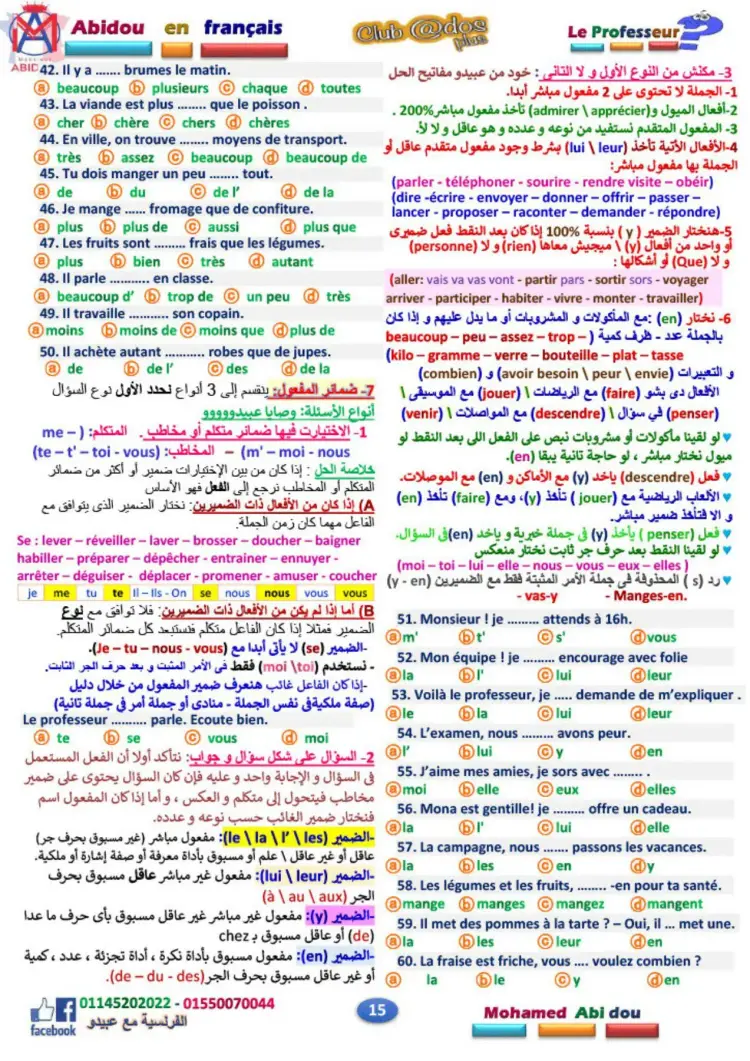 Abidou en français
Club @dos plus
Le Professeur
ABID
42. Il y a ....... brumes le matin.
ⓐ beaucoup ⓑ plusieurs ⓒ chaque ⓓ toutes
43. La viande est plus ........ que le poisson .
ⓐ cher ⓑ chère ⓒ chers ⓓ chères
44. En ville, on trouve ........ moyens de transport.
ⓐ très ⓑ assez ⓒ beaucoup ⓓ beaucoup de
45. Tu dois manger un peu ........ tout.
ⓐ de ⓑ du ⓒ de l' ⓓ de la
46. Je mange ...... fromage que de confiture.
ⓐ plus ⓑ plus de ⓒ aussi ⓓ plus que
47. Les fruits sont ......... frais que les légumes.
ⓐ plus ⓑ bien ⓒ très ⓓ autant
48. Il parle ........... en classe.
ⓐ beaucoup d' ⓑ trop de ⓒ un peu ⓓ très
49. Il travaille ........... son copain.
ⓐ moins ⓑ moins de ⓒ moins que ⓓ plus de
50. Il achète autant ........... robes que de jupes.
ⓐ de ⓑ de l' ⓒ des ⓓ de la
7- ضمائر المفعول: ينقسم إلى 3 أنواع نحدد الأول نوع السؤال
أنواع الأسئلة: وصايا عبيدووووو
1- الاختيارت فيها ضمائر متكلم أو مخاطب . المتكلم: ( me –
m' – moi - nous) – المخاطب: (te – t' – toi - vous)
خلاصة الحل : إذا كان من بين الإختيارات ضمير أو أكثر من ضمائر
المتكلم أو المخاطب نرجع إلى الفعل فهو الأساس
A) إذا كان من الأفعال ذات الضميرين: نختار الضمير الذى يتوافق مع
الفاعل مهما كان زمن الجملة.
Se : lever – réveiller – laver – brosser – doucher – baigner
habiller – préparer – dépêcher - entrainer – ennuyer -
arrêter – déguiser - déplacer - promener - amuser - coucher
je me tu te Il – Ils - On se nous nous vous vous
B) أما إذا لم يكن من الأفعال ذات الضميرين: فلا توافق مع نوع
الضمير فمثلا إذا كان الفاعل متكلم فنستبعد كل ضمائر المتكلم.
-الضمير (se) لا يأتى أبدا مع (Je – tu – nous - vous).
- نستخدم (moi \toi) فقط فى الأمر المثبت و بعد حرف الجر الثابت.
-إذا كان الفاعل غائب هنعرف ضمير المفعول من خلال دليل
(صفة ملكيةفى نفس الجملة - منادى أو جملة أمر في جملة تانية)
Le professeur .......... parle. Ecoute bien.
ⓐ te ⓑ se ⓒ vous ⓓ moi
2- السؤال على شكل سؤال و جواب: نتأكد أولا أن الفعل المستعمل
فى السؤال و الإجابة واحد و عليه فإن كان السؤال يحتوى على ضمير
مخاطب فيتحول إلى متكلم و العكس ، و أما إذا كان المفعول اسم
فنختار ضمير الغائب حسب نوعه و عدده.
-الضمير (le \ la \ l' \ les): مفعول مباشر (غير مسبوق بحرف جر)
عاقل أو غير عاقل \ علم أو مسبوق بأداة معرفة أو صفة إشارة أو ملكية.
-الضمير (lui \ leur): مفعول غير مباشر عاقل مسبوق بحرف
الجر (à \ au \ aux)
-الضمير (y): مفعول غير مباشر غير عاقل مسبوق بأى حرف ما عدا
(de) أو عاقل مسبوق بـ chez
-الضمير (en): مفعول مسبوق بأداة نكرة ، أداة تجزئة ، عدد ، كمية
أو غير عاقل مسبوق بحرف الجر(de – du - des).
3- مكنش من النوع الأول و لا التانى : خود من عبيدو مفاتيح الحل
1- الجملة لا تحتوى على 2 مفعول مباشر أبدا.
2-أفعال الميول و(admirer \ apprécier) تأخذ مفعول مباشر200% .
3- المفعول المتقدم نستفيد من نوعه و عدده و هو عاقل و لا لأ.
4-الأفعال الأتية تأخذ (lui \ leur) بشرط وجود مفعول متقدم عاقل أو
الجملة بها مفعول مباشر:
(parler - téléphoner - sourire - rendre visite – obéir)
(dire -écrire - envoyer – donner – offrir – passer –
lancer - proposer – raconter – demander - répondre)
5-هنختار الضمير ( y ) بنسبة 100% إذا كان بعد النقط فعل ضميرى
أو واحد من أفعال (y) \ ميجيش معاها (rien) و لا (personne)
و لا (Que) أو أشكالها :
(aller: vais va vas vont - partir pars - sortir sors - voyager
arriver - participer - habiter - vivre - monter - travailler)
6- نختار (en) :مع المأكولات و المشروبات أو ما يدل عليهم و إذا كان
بالجملة عدد - ظرف كمية ( beaucoup – peu – assez – trop –
(kilo – gramme – verre – bouteille – plat – tasse
و التعبيرات (avoir besoin \ peur \ envie) و (combien)
الأفعال دى بشو (faire) مع الرياضات \ (jouer) مع الموسيقى \
(penser) في سؤال \ (descendre) مع المواصلات \ (venir)
♥ لو لقينا مأكولات أو مشروبات نبص على الفعل اللى بعد النقط لو
ميول نختار مباشر ، لو حاجة تانية يبقا (en).
♥ فعل (descendre) ياخد (y) مع الأماكن و (en) مع الموصلات.
♥ الألعاب الرياضية مع (jouer ) تأخذ (y)، ومع (faire) تأخذ (en)
و الا فتأخذ ضمير مباشر.
♥ فعل ( penser ) يأخذ (y) فى جملة خبرية و ياخد (en)فى السؤال.
♥ لو لقينا النقط بعد حرف جر ثابت نختار منعكس
(moi – toi – lui – elle – nous – vous – eux – elles )
♥ رد ( s ) المحذوفة فى جملة الأمر المثبتة فقط مع الضميرين (y - en)
- vas-y - Manges-en.
51. Monsieur ! je ......... attends à 16h.
ⓐ m' ⓑ t' ⓒ s' ⓓ vous
52. Mon équipe ! je ......... encourage avec folie
ⓐ la ⓑ l' ⓒ lui ⓓ leur
53. Voilà le professeur, je ..... demande de m'expliquer .
ⓐ le ⓑ la ⓒ lui ⓓ leur
54. L'examen, nous ......... avons peur.
ⓐ l' ⓑ lui ⓒ y ⓓ en
55. J'aime mes amies, je sors avec ........ .
ⓐ moi ⓑ elle ⓒ eux ⓓ elles
56. Mona est gentille! je ......... offre un cadeau.
ⓐ la ⓑ l' ⓒ lui ⓓ elle
57. La campagne, nous ....... passons les vacances.
ⓐ la ⓑ les ⓒ en ⓓ y
58. Les légumes et les fruits, ........ -en pour ta santé.
ⓐ mange ⓑ manges ⓒ mangez ⓓ mangent
59. Il met des pommes à la tarte ? – Oui, il ... met une.
ⓐ la ⓑ les ⓒ leur ⓓ en
60. La fraise est friche, vous .... voulez combien ?
ⓐ la ⓑ le ⓒ y ⓓ en
facebook
01145202022 - 01550070044
الفرنسية مع عبيدو
15
Mohamed Abi dou